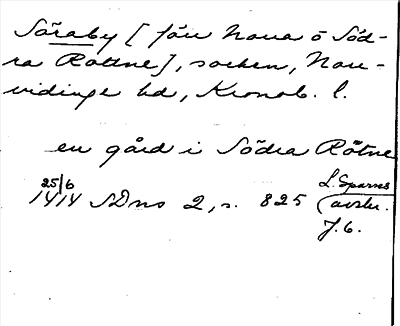 Söraby [för Norra o Söd-
ra Rottne], socken, Norr-
vidinge hd, Kronob. l.
en gård i Södra Rötne
25/6
1414 SDns 2, s. 825
L. Sparres
avskr.
J. 6.